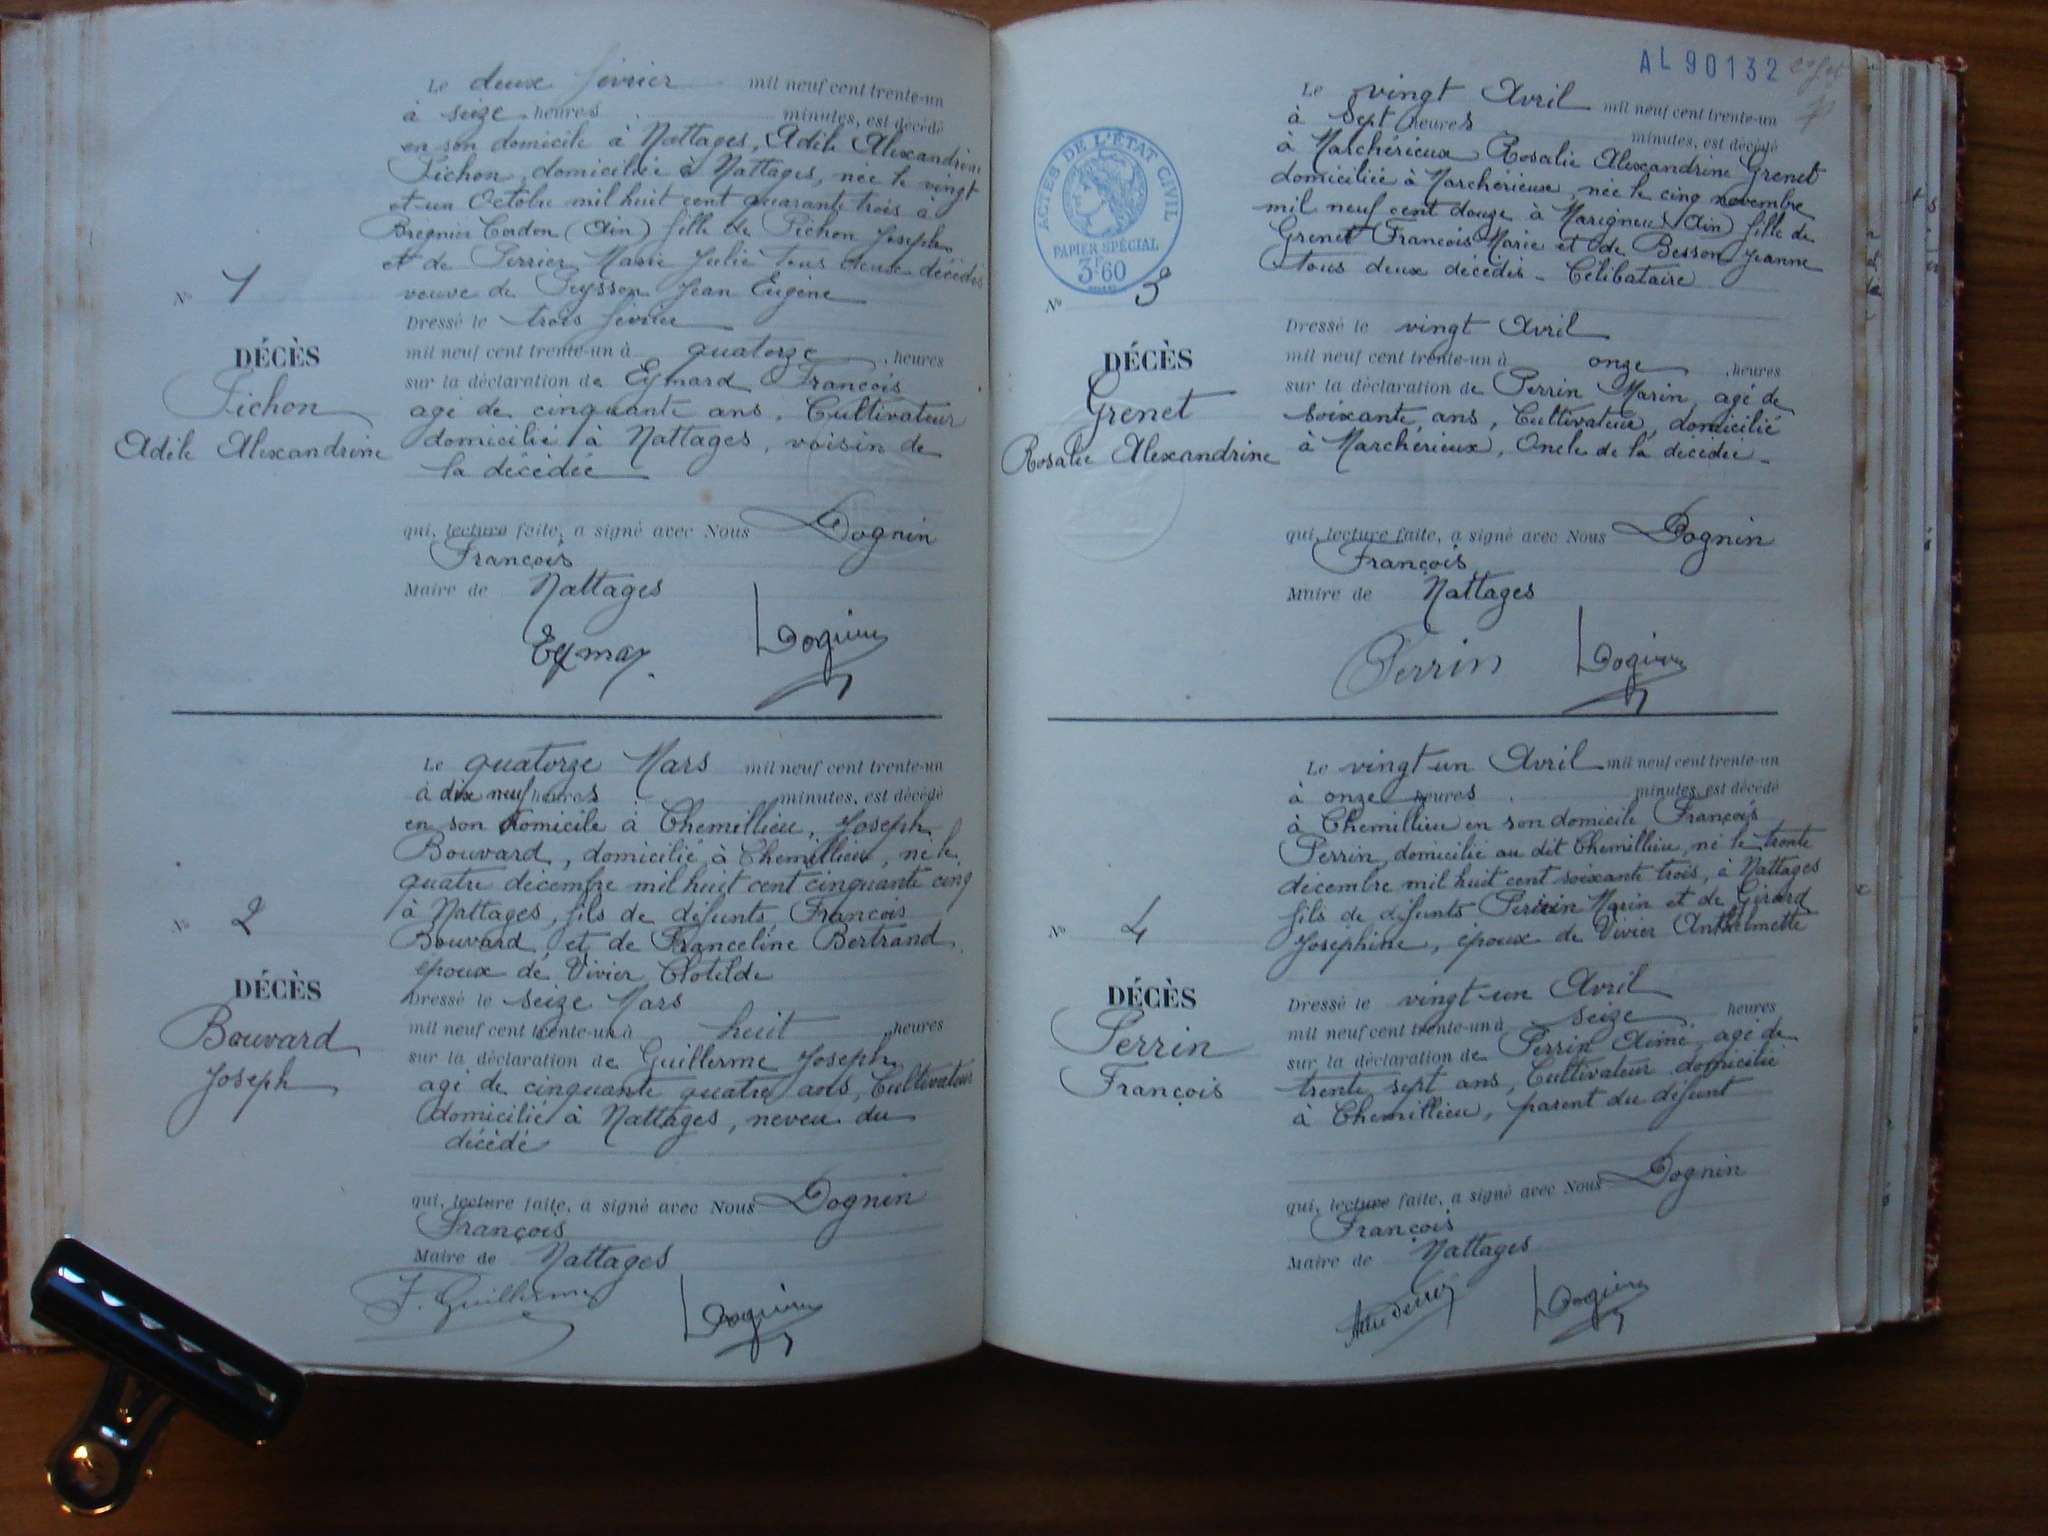 Le deux février mil neuf cent trente-un
à seize heures minutes, est décédé
en son domicile à Nattages, Adèle Alexandrine
Pichon, domiciliée à Nattages, née le vingt
et un Octobre mil huit cent quarante trois à
Bregnier Cordon (Ain) fille de Pichon Joseph
et de Perrier Marie Julie tous deux décédés
veuve de Peysson Jean Eugène
Dressé le trois février
mil neuf cent trente-un à quatorze heures
sur la déclaration de Eymard François
agé de cinquante ans, Cultivateur
domicilié à Nattages, voisin de
la décédée
qui, lecture faite, a signé avec Nous Dognin
François
Maire de Nattages
Nº 1
DÉCÈS
Pichon
Adèle Alexandrine
Le quatorze Mars mil neuf cent trente-un
à dix neuf heures minutes, est décédé
en son domicile à Chemillieu, Joseph
Bouvard, domicilié à Chemillieu, né le
quatre décembre mil huit cent cinquante cinq
à Nattages, fils de défunts François
Bouvard et de Franceline Bertrand
époux de Vivier Clotilde
Dressé le seize Mars
mil neuf cent trente-un à huit heures
sur la déclaration de Guillerme Joseph
agé de cinquante quatre ans, Cultivateur
domicilié à Nattages, neveu du
décédé
qui, lecture faite, a signé avec Nous Dognin
François
Maire de Nattages
J. Guillerme Dognin
Nº 2
DÉCÈS
Bouvard
Joseph
AL 90132
ACTES DE L'ÉTAT CIVIL
PAPIER SPÉCIAL
3F60
Le vingt Avril mil neuf cent trente-un
à sept heures minutes, est décédé
à Marchérieux Rosalie Alexandrine Grenet
domiciliée à Marchérieux, née le cinq novembre
mil neuf cent douze à Marigneu (Ain) fille de
Grenet François Marie et de Besson Jeanne
tous deux décédés - Célibataire
Dressé le vingt Avril
mil neuf cent trente-un à onze heures
sur la déclaration de Perrin Marin, agé de
soixante ans, Cultivateur, domicilié
à Marchérieux, Oncle de la décédée -
qui, lecture faite, a signé avec Nous Dognin
François
Maire de Nattages
Perrin Dognin
Nº 3
DÉCÈS
Grenet
Rosalie Alexandrine
Le vingt-un Avril mil neuf cent trente-un
à onze heures minutes, est décédé
à Chemillieu en son domicile François
Perrin, domicilié au dit Chemillieu, né le trente
décembre mil huit cent soixante trois, à Nattages
fils de défunts Perrin Marin et de Girard
Josephine, époux de Vivier Anthelmette
Dressé le vingt-un Avril
mil neuf cent trente-un à seize heures
sur la déclaration de Perrin Aimé, agé de
trente sept ans, Cultivateur domicilié
à Chemillieu, parent du défunt
qui, lecture faite, a signé avec Nous Dognin
François
Maire de Nattages
Nº 4
DÉCÈS
Perrin
François